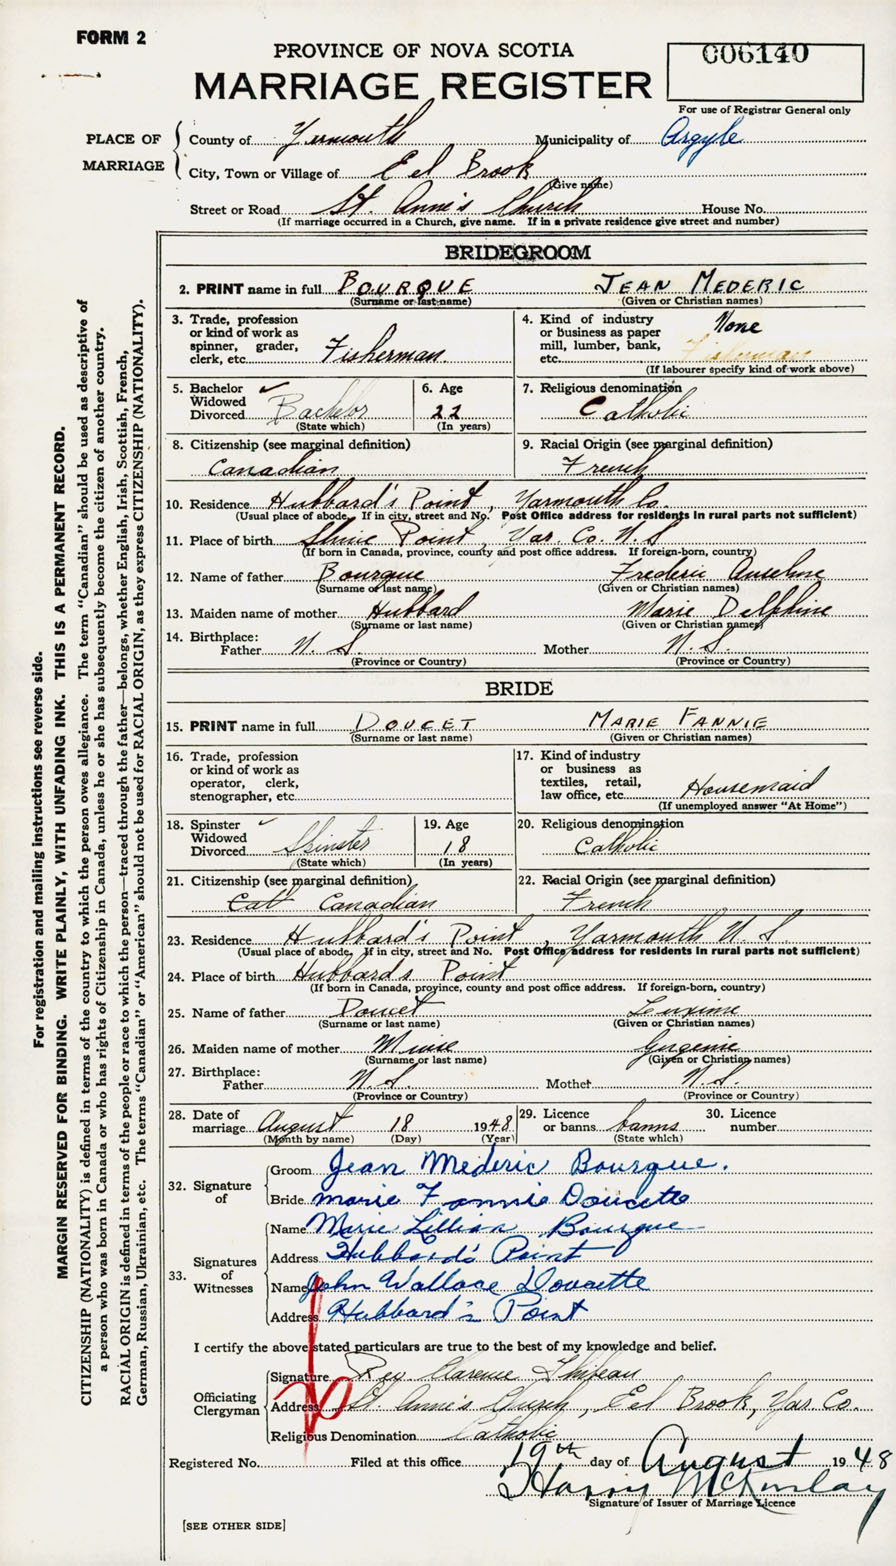 FORM 2
006140
PROVINCE OF NOVA SCOTIA
MARRIAGE REGISTER
For use of Registrar General only
PLACE OF MARRIAGE
County of Yarmouth Municipality of Argyle
City, Town or Village of Eel Brook
(Give name)
Street or Road St. Anne's Church House No.
(If marriage occurred in a Church, give name. If in a private residence give street and number)
BRIDEGROOM
2. PRINT name in full BOURQUE JEAN MEDERIC
(Surname or last name) (Given or Christian names)
3. Trade, profession or kind of work as spinner, grader, clerk, etc. Fisherman
4. Kind of industry or business as paper mill, lumber, bank, etc. None Fisherman
(If labourer specify kind of work above)
5. Bachelor ✓ Widowed Divorced Bachelor
(State which)
6. Age 22
(In years)
7. Religious denomination Catholic
8. Citizenship (see marginal definition) Canadian
9. Racial Origin (see marginal definition) French
10. Residence Hubbard's Point, Yarmouth Co.
(Usual place of abode. If in city, street and No. Post Office address for residents in rural parts not sufficient)
11. Place of birth Point, Yar. Co. N.S
(If born in Canada, province, county and post office address. If foreign-born, country)
12. Name of father Bourque Frederic Anselme
(Surname or last name) (Given or Christian names)
13. Maiden name of mother Hubbard Marie Delphine
(Surname or last name) (Given or Christian names)
14. Birthplace: Father N. S. Mother N. S.
(Province or Country) (Province or Country)
BRIDE
15. PRINT name in full DOUCET MARIE FANNIE
(Surname or last name) (Given or Christian names)
16. Trade, profession or kind of work as operator, clerk, stenographer, etc.
17. Kind of industry or business as textiles, retail, law office, etc. Housemaid
(If unemployed answer "At Home")
18. Spinster ✓ Widowed Divorced Spinster
(State which)
19. Age 18
(In years)
20. Religious denomination Catholic
21. Citizenship (see marginal definition) Cat Canadian
22. Racial Origin (see marginal definition) French
23. Residence Hubbard's Point, Yarmouth N.S.
(Usual place of abode. If in city, street and No. Post Office address for residents in rural parts not sufficient)
24. Place of birth Hubbard's Point
(If born in Canada, province, county and post office address. If foreign-born, country)
25. Name of father Doucet
(Surname or last name) (Given or Christian names)
26. Maiden name of mother Muise
(Surname or last name) (Given or Christian names)
27. Birthplace: Father N.S. Mother N.S.
(Province or Country) (Province or Country)
28. Date of marriage August 18 1948
(Month by name) (Day) (Year)
29. Licence or banns banns
(State which)
30. Licence number
32. Signature of
Groom Jean Mederic Bourque.
Bride Marie Fannie Doucette
33. Signatures of Witnesses
Name Marie Lillian Bourque
Address Hubbard's Point
Name John Wallace Doucette
Address Hubbard's Point
I certify the above stated particulars are true to the best of my knowledge and belief.
Officiating Clergyman
Signature Rev Clarence Thibeau
Address St. Anne's Church, Eel Brook, Yar. Co.
Religious Denomination Catholic
Registered No. Filed at this office 19th day of August 1948
Harry McKinlay
Signature of Issuer of Marriage Licence
[SEE OTHER SIDE]
For registration and mailing instructions see reverse side.
MARGIN RESERVED FOR BINDING. WRITE PLAINLY, WITH UNFADING INK. THIS IS A PERMANENT RECORD.
CITIZENSHIP (NATIONALITY) is defined in terms of the country to which the person owes allegiance. The term "Canadian" should be used as descriptive of
a person who was born in Canada or who has rights of Citizenship in Canada, unless he or she has subsequently become the citizen of another country.
RACIAL ORIGIN is defined in terms of the people or race to which the person—traced through the father—belongs, whether English, Irish, Scottish, French,
German, Russian, Ukrainian, etc. The terms "Canadian" or "American" should not be used for RACIAL ORIGIN, as they express CITIZENSHIP (NATIONALITY).